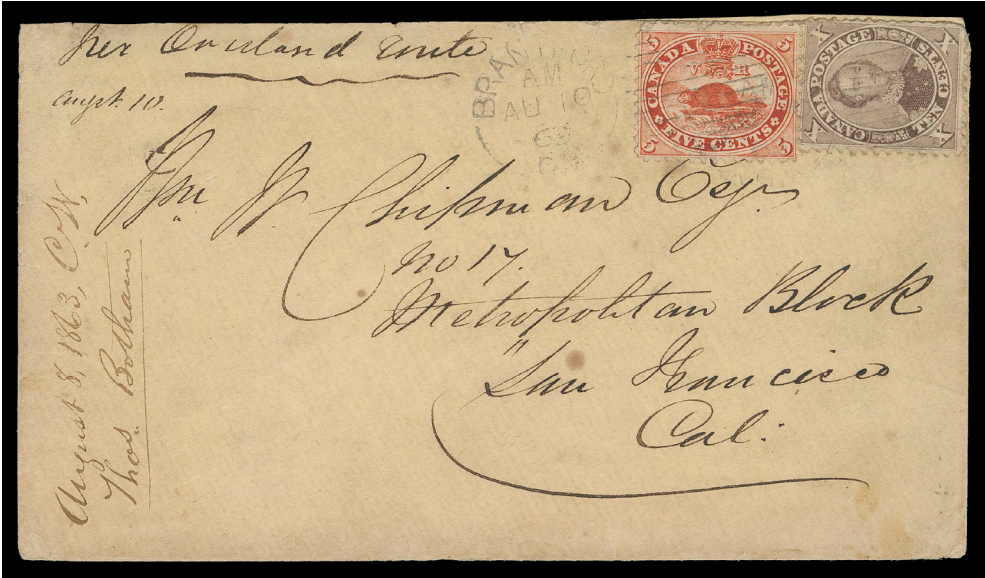 per Overland Route
Augst. 10.
BRAN
AM
AU 10
63
5 CANADA POSTAGE 5
V R
5 FIVE CENTS 5
X CANADA POSTAGE X
X TEN CENTS X
Wm W Chipman Esqr.
No 17.
Metropolitan Block
San Francisco
Cal:
August 8, 1863, C. W.
Thos. Botham